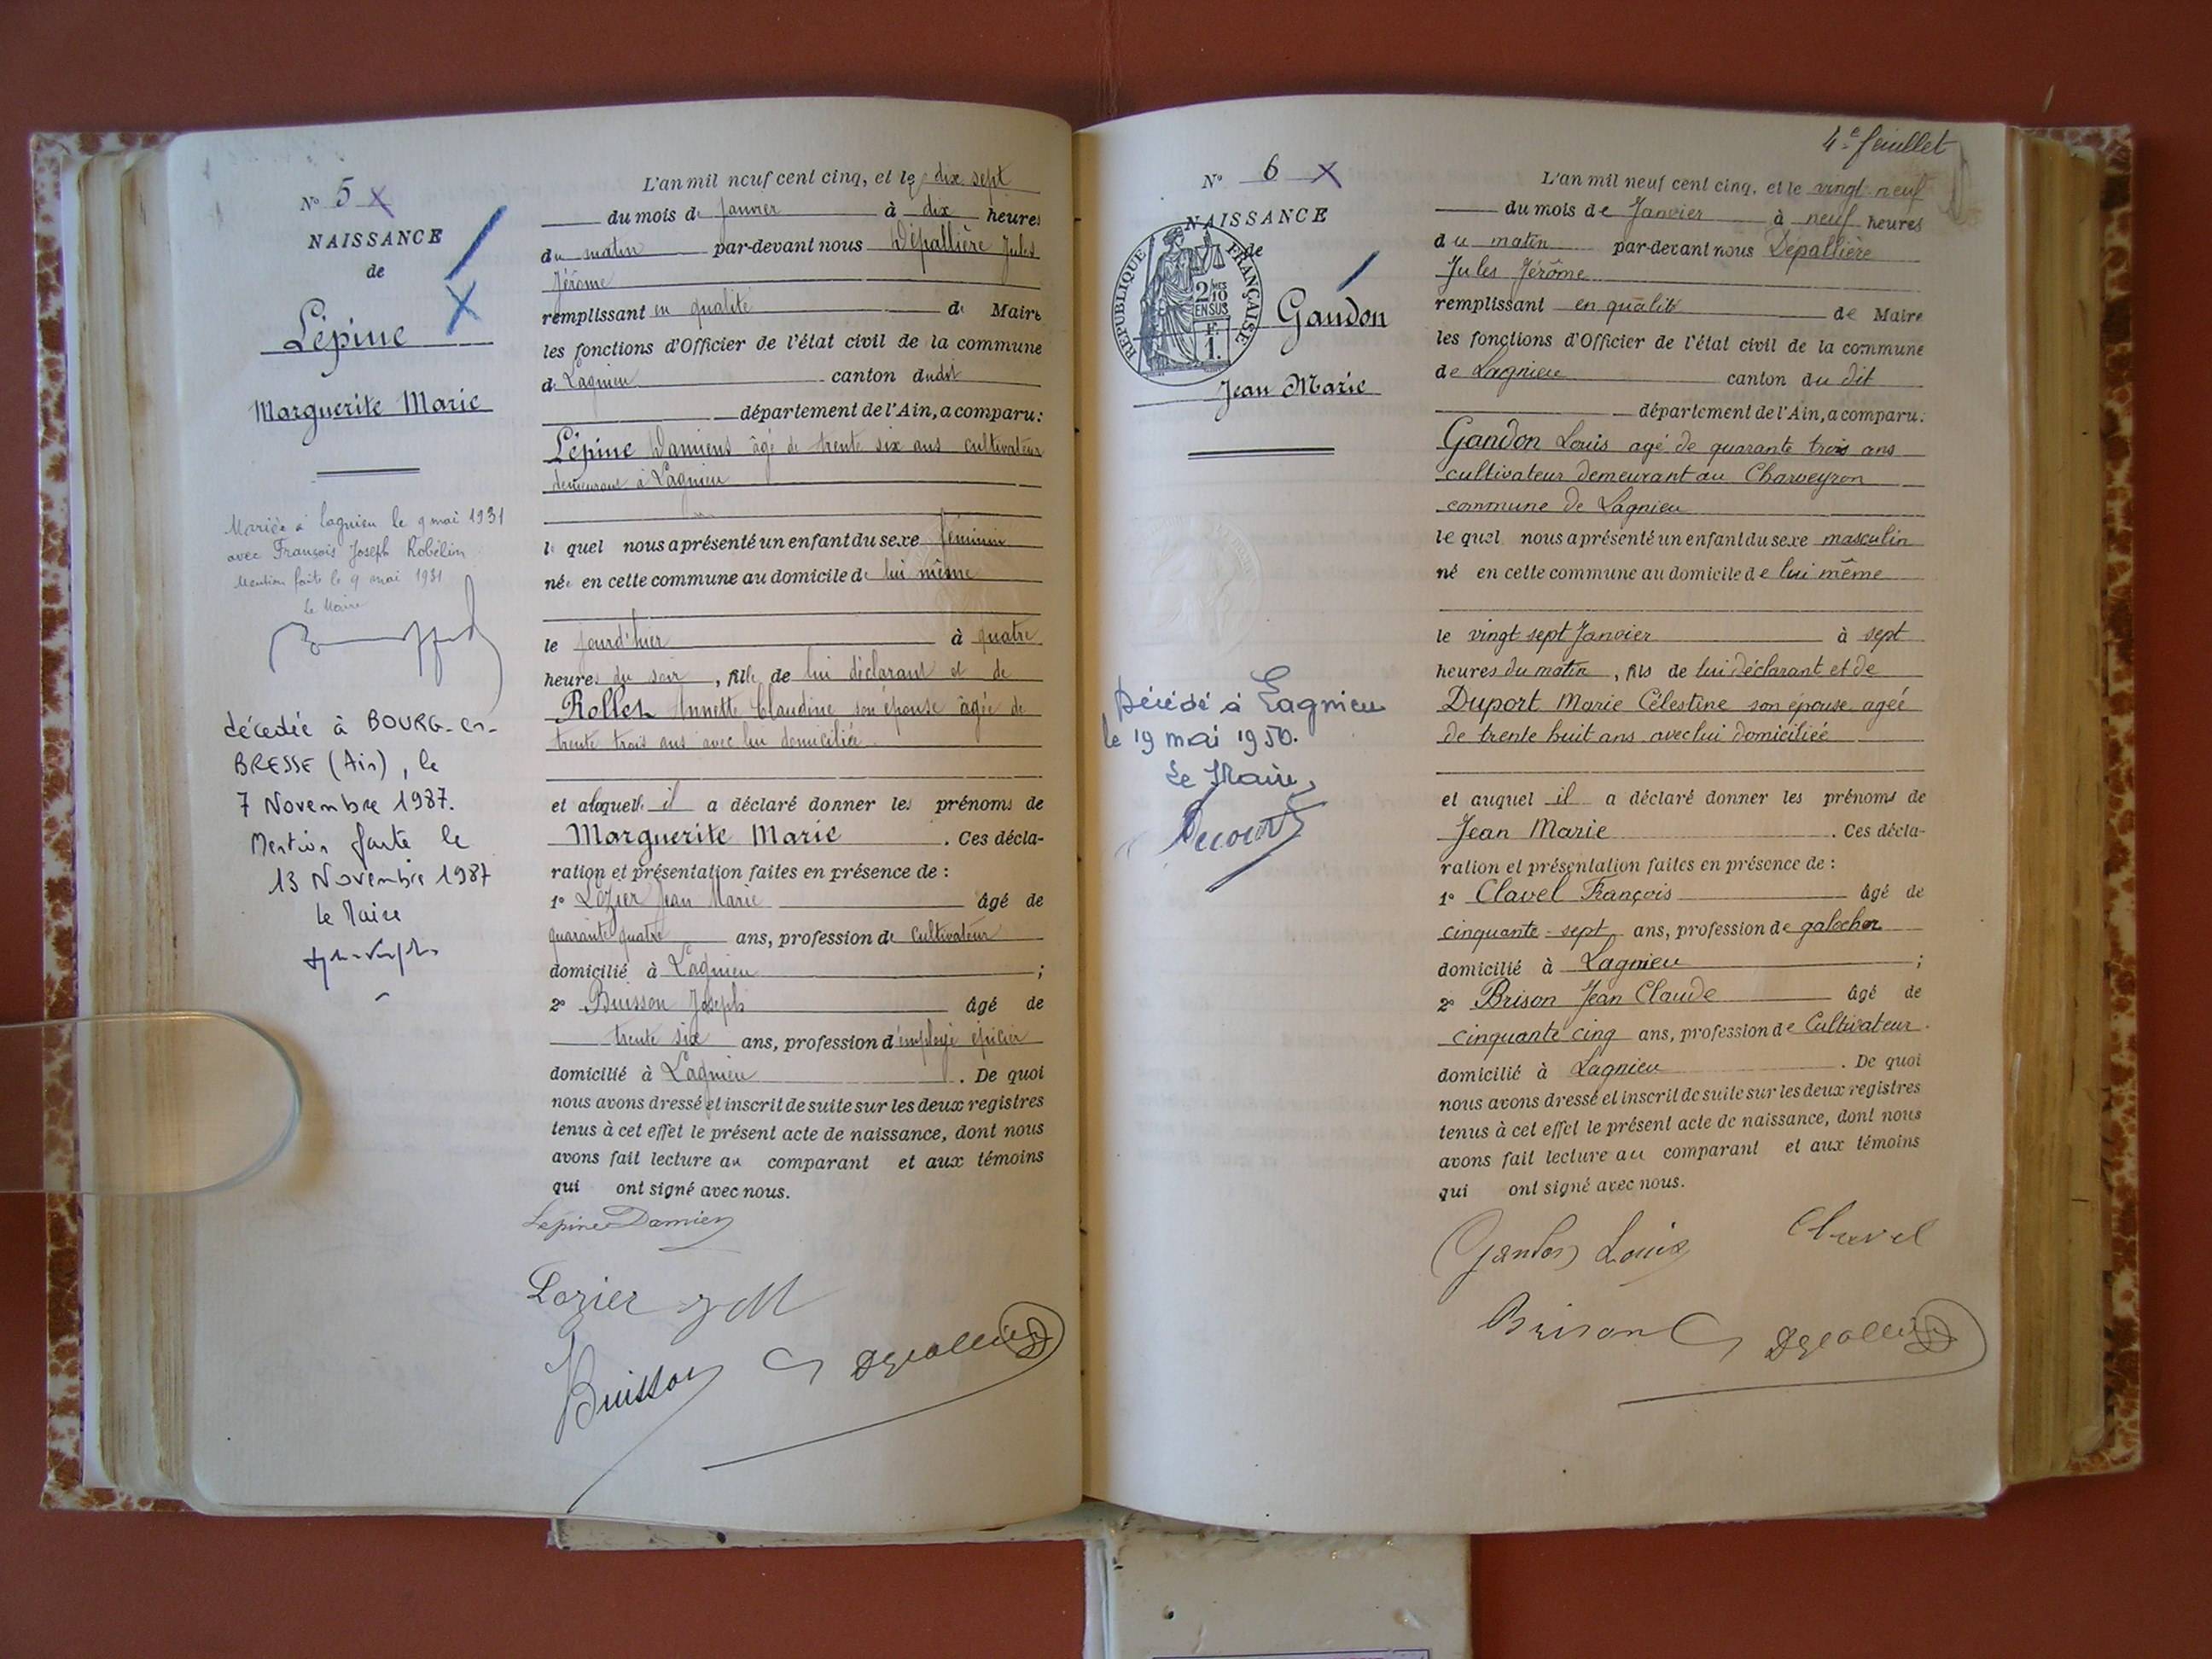 N° 5 X
NAISSANCE
de
Lépine
Marguerite Marie
Mariée à Lagnieu le 9 mai 1931
avec François Joseph Robélin
Mention faite le 9 mai 1931
Le Maire
décedée à BOURG-en-
BRESSE (Ain), le
7 Novembre 1987.
Mention faite le
13 Novembre 1987
le Maire
L'an mil neuf cent cinq, et le dix sept
du mois de Janvier à dix heures
du matin par-devant nous Dépallière Jules
Jérôme
remplissant en qualité de Maire
les fonctions d'Officier de l'état civil de la commune
de Lagnieu canton dudit
département de l'Ain, a comparu:
Lépine Damiens âgé de trente six ans cultivateur
demeurant à Lagnieu
le quel nous a présenté un enfant du sexe féminin
née en cette commune au domicile de lui même
le jourd'hier à quatre
heures du soir, fille de lui déclarant et de
Rollet Annette Claudine son épouse âgée de
trente trois ans avec lui domiciliée
et auquel il a déclaré donner les prénoms de
Marguerite Marie. Ces décla-
ration et présentation faites en présence de :
1° Lozier Jean Marie âgé de
quarante quatre ans, profession de Cultivateur
domicilié à Lagnieu ;
2° Buisson Joseph âgé de
trente six ans, profession d'employé épicier
domicilié à Lagnieu. De quoi
nous avons dressé et inscrit de suite sur les deux registres
tenus à cet effet le présent acte de naissance, dont nous
avons fait lecture au comparant et aux témoins
qui ont signé avec nous.
Lépine Damien
Lozier JM
Buisson Depallière
4e feuillet
N° 6 X
NAISSANCE
de
RÉPUBLIQUE FRANÇAISE
2/10 EN SUS
1 F.
Gandon
Jean Marie
Décédé à Lagnieu
le 19 mai 1950.
Le Maire,
L'an mil neuf cent cinq, et le vingt neuf
du mois de Janvier à neuf heures
du matin par-devant nous Depallière
Jules Jérôme
remplissant en qualité de Maire
les fonctions d'Officier de l'état civil de la commune
de Lagnieu canton du dit
département de l'Ain, a comparu:
Gandon Louis agé de quarante trois ans
cultivateur demeurant au Charveyron
commune de Lagnieu
le quel nous a présenté un enfant du sexe masculin
né en cette commune au domicile de lui même
le vingt sept Janvier à sept
heures du matin, fils de lui déclarant et de
Duport Marie Célestine son épouse agée
de trente huit ans avec lui domiciliée
et auquel il a déclaré donner les prénoms de
Jean Marie. Ces décla-
ration et présentation faites en présence de :
1° Clavel François âgé de
cinquante-sept ans, profession de galocher
domicilié à Lagnieu ;
2° Brison Jean Claude âgé de
cinquante cinq ans, profession de Cultivateur.
domicilié à Lagnieu. De quoi
nous avons dressé et inscrit de suite sur les deux registres
tenus à cet effet le présent acte de naissance, dont nous
avons fait lecture au comparant et aux témoins
qui ont signé avec nous.
Gandon Louis Clavel
Brison Depallière